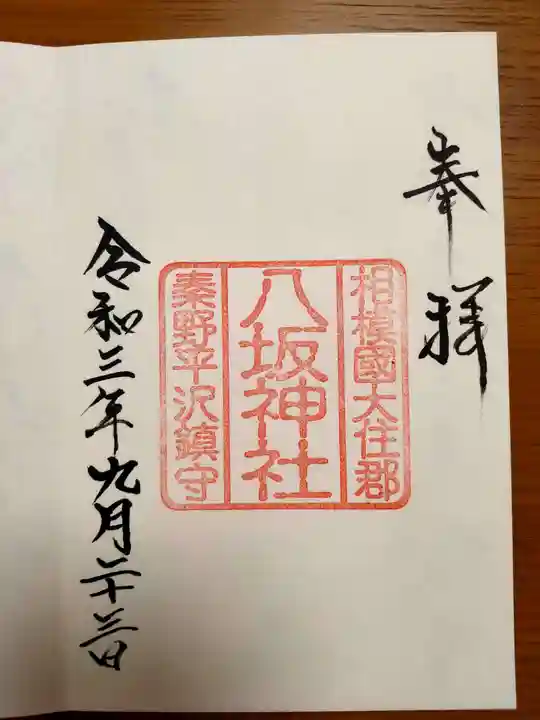 奉拝
相模國大住郡
八坂神社
秦野平沢鎮守
令和三年九月二十三日